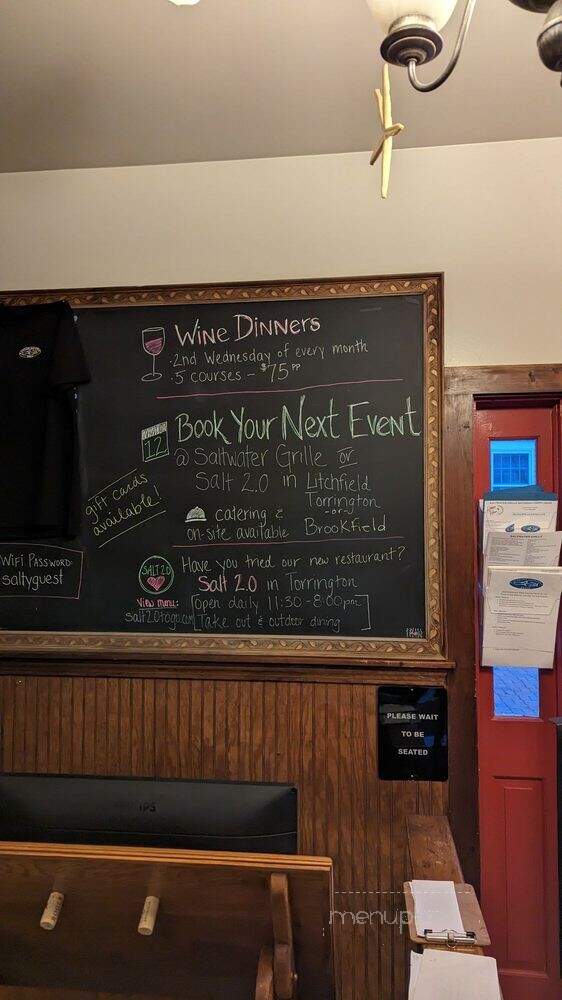 Wine Dinners
· 2nd Wednesday of every month
· 5 courses - $75 PP
12
Book Your Next Event
@ Saltwater Grille or
Salt 2.0 in Litchfield
Torrington
-or-
Brookfield
gift cards
available!
catering &
on-site available
WiFi Password:
saltyguest
SALT 2.0
Have you tried our new restaurant?
Salt 2.0 in Torrington
View menu:
salt20togo.com
[Open daily 11:30-8:00pm]
[Take out & outdoor dining]
PLEASE WAIT
TO BE
SEATED
menupi